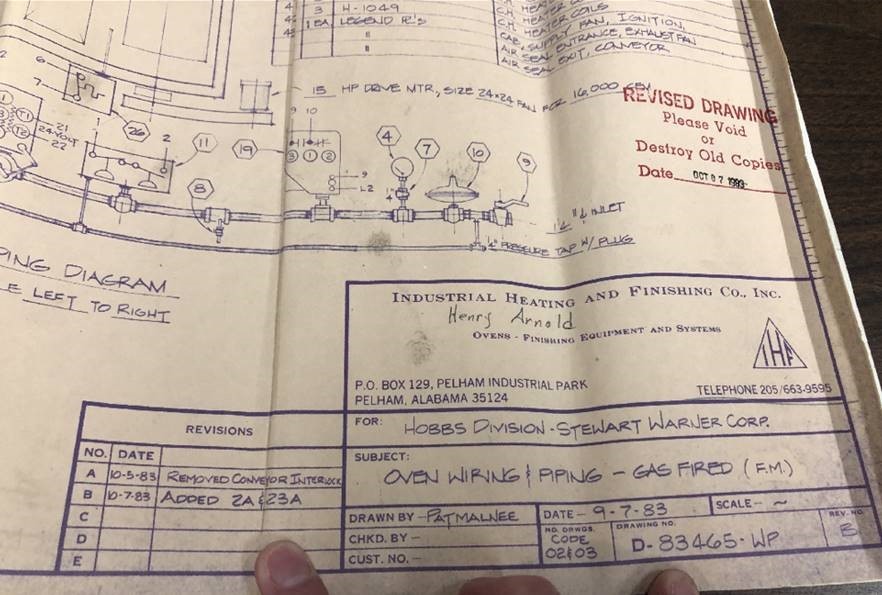 4 3 H-1049
1 EA LEGEND PL'S
"
"
C.H. HEATER COILS
CAB, SUPPLY FAN, IGNITION,
AIR SEAL ENTRANCE, EXHAUST FAN
AIR SEAL EXIT, CONVEYOR
15 HP DRIVE MTR, SIZE 24x24 FAN FOR 16,000 CFM
REVISED DRAWING
Please Void
or
Destroy Old Copies
Date OCT 07 1983
6
7
26
T1
T2
21
24-VOLT
22
1 2
11
19
9 10
3 1 2
9
L2
4
7
10
9
8
1¼" INLET
¼" PRESSURE TAP W/ PLUG
PING DIAGRAM
E LEFT TO RIGHT
INDUSTRIAL HEATING AND FINISHING CO., INC.
Henry Arnold
OVENS - FINISHING EQUIPMENT AND SYSTEMS
IHF
P.O. BOX 129, PELHAM INDUSTRIAL PARK
PELHAM, ALABAMA 35124
TELEPHONE 205/663-9595
FOR: HOBBS DIVISION - STEWART WARNER CORP.
SUBJECT:
OVEN WIRING & PIPING - GAS FIRED (F.M.)
DRAWN BY - PAT MALNEE
DATE - 9-7-83
SCALE - ~
CHKD. BY -
CUST. NO. -
NO. DRWGS.
CODE
02&03
DRAWING NO.
D-83465-WP
REV. NO.
B
REVISIONS
NO. DATE
A 10-5-83 REMOVED CONVEYOR INTERLOCK
B 10-7-83 ADDED 2A & 23A
C
D
E